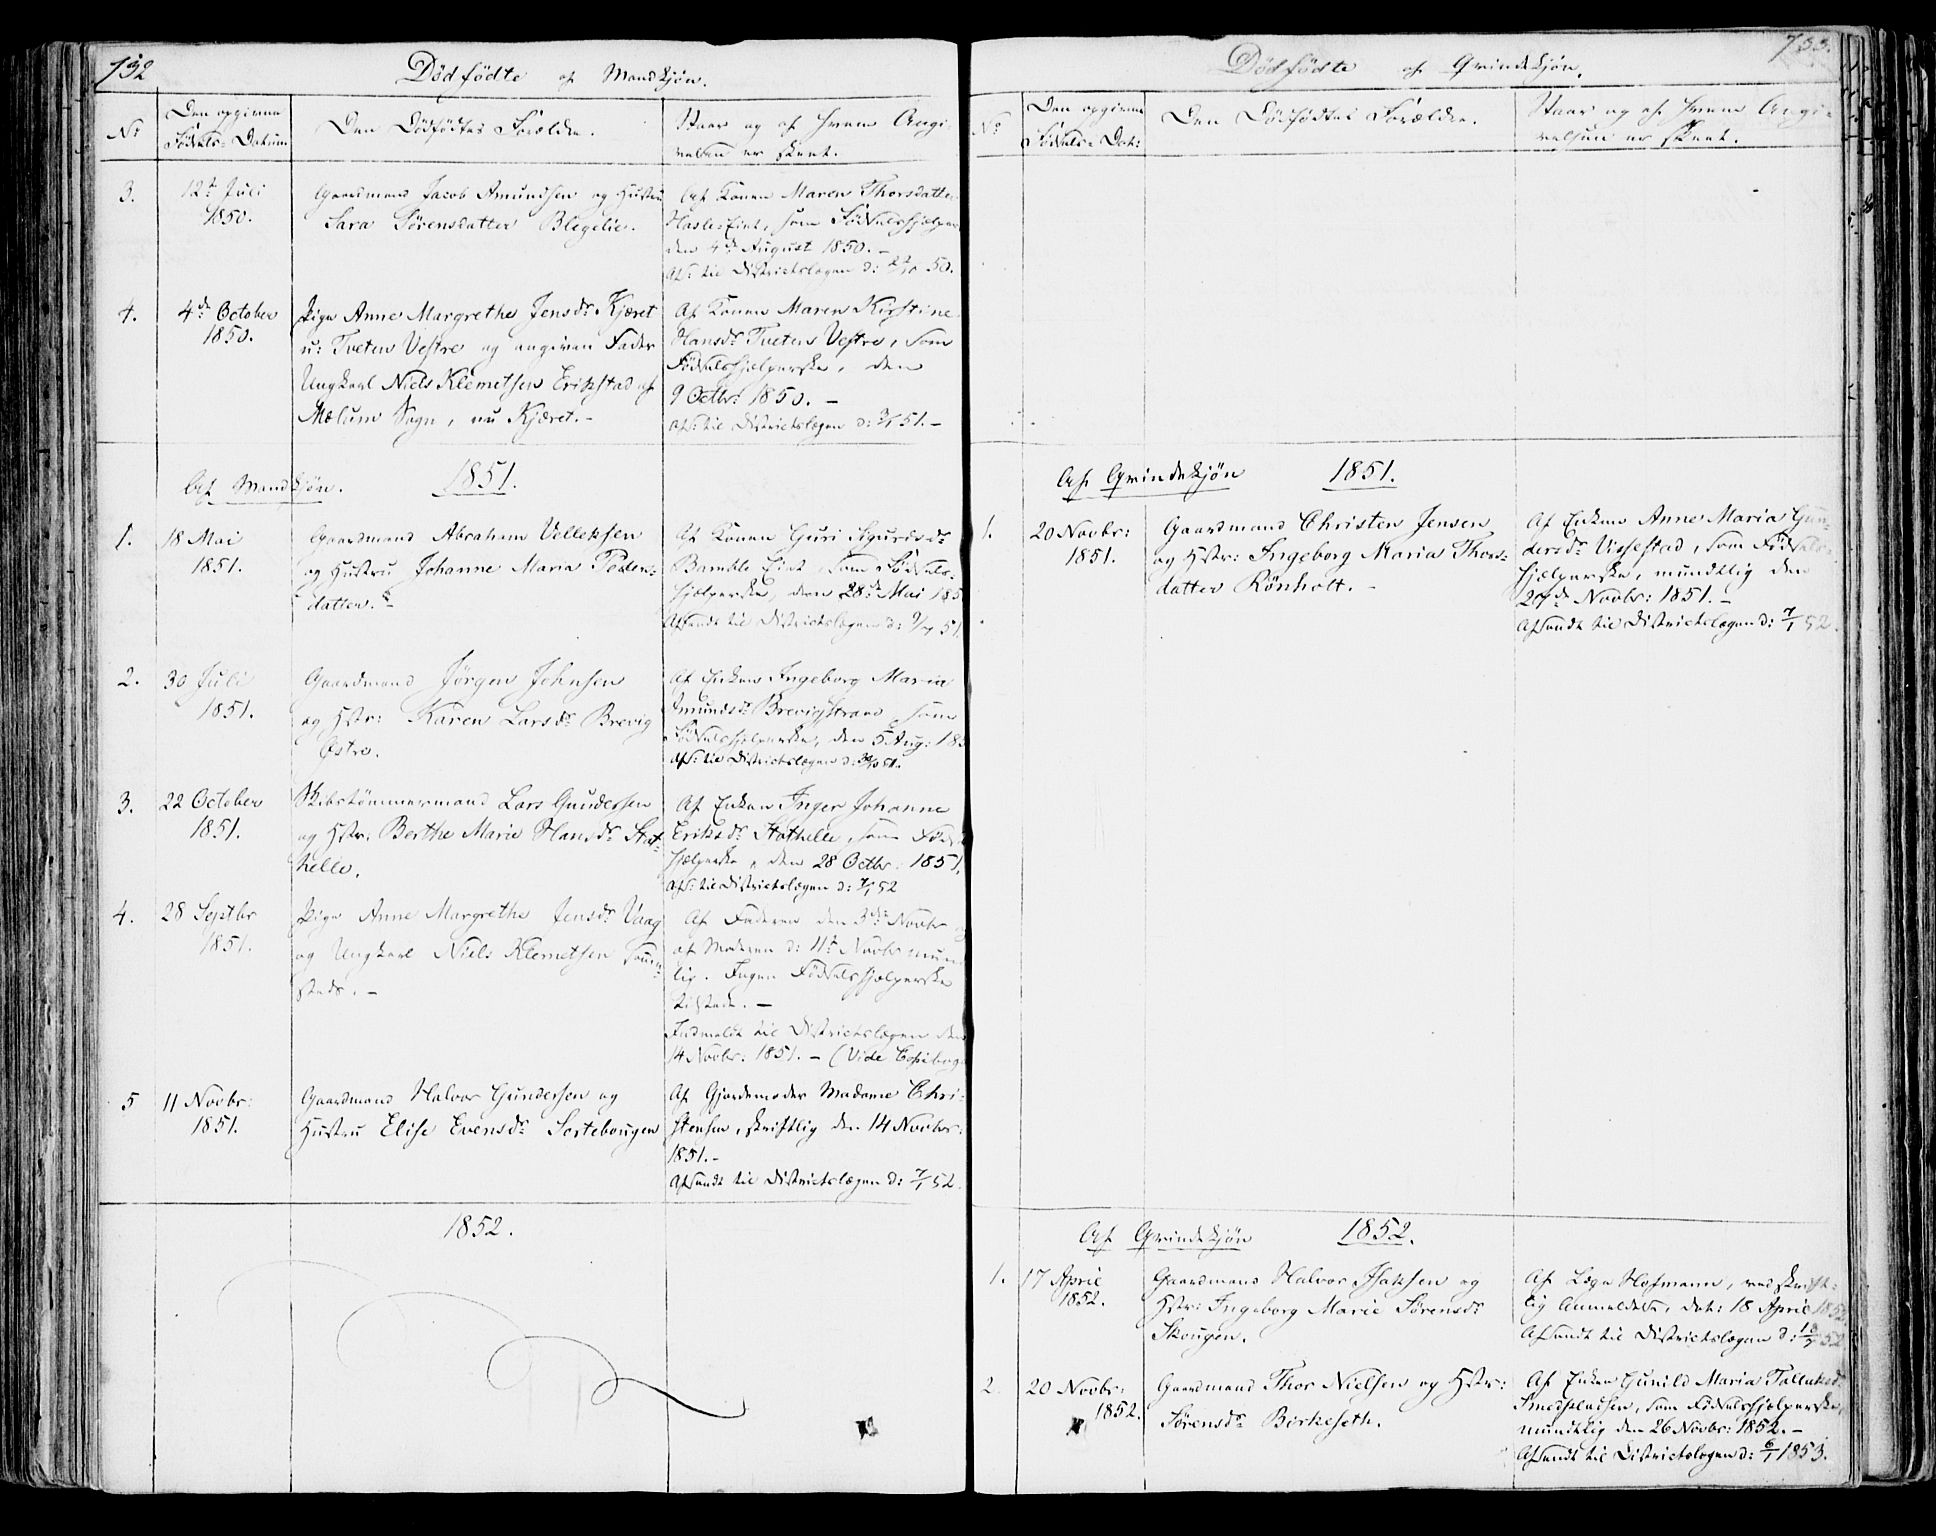 732
Dødfødte af Mandkjøn.
No
Den opgivne
Fødsels-Datum
Den Dødfødtes Forældre.
Naar og af hvem Angi-
velsen er skeet.
3.
12te Juli
1850.
Gaardmand Jacob Amundsen og Hustru
Sara Sørensdatter Blegelie.
Af Konen Maren Thorsdatter
som Fødselshjelper
den 4de August 1850. –
Afs: til Districtslægen d: 50.
4.
4de October
1850.
Pige Anne Margrethe Jensdr Kjæret
u: Tveten Vestre og angiven Fader
Ungkarl Niels Klemetsen Erikstad af
Mælum Sogn, nu Kjæret. –
Af Konen Maren Kirstine
Hansdr Tveten Vestre, som
Fødselshjelperske, den
9 Octbr: 1850. –
Afs: til Districtslægen d: 51. –
Af Mandkjøn. 1851.
1.
18 Mai
1851.
Gaardmand Abraham Velleksen
og Hustru Johanne Maria Peders-
datter. –
Af Konen Guri Sigurdsdr
Bamble Eiet, som Fødsels-
hjelperske, den 28de Mai 185
Afsendt til Districtslægen d: 51.
2.
30 Juli
1851.
Gaardmand Jørgen Johnsen
og Hstr: Karen Larsdr Brevig
Østre.
Af Enken Ingeborg Maria
Amundsdr Brevigstrand som
Fødselshjelperske, den 5 Aug: 185
Afs: til Districtslægen d: 51.
3.
22 October
1851.
Skibstømmermand Lars Gundersen
og Hstr: Berthe Marie Hansdr Stat-
helle.
Af Enken Inger Johanne
Eriksdr Stathelle, som Føds
hjelperske, den 28 Octbr: 1851.
Afs: til Districtslægen d: 7/1 52
4.
28 Septbr
1851.
Pige Anne Margrethe Jensdr Vaag
og Ungkarl Niels Klemetsen samme-
steds. –
Af Faderen den 3die Novbr
af Moderen d: 11te Novbr mund
lig. Ingen Fødselshjelperske
tilstede. –
Indmeldt til Districtslægen den
14 Novbr: 1851. – (Vide Copibog
5
11 Novbr:
1851.
Gaardmand Halvor Gundersen og
Hustru Elise Evensdr Sortebougen
Af Gjordemoder Madame Chri-
stensen, skriftlig den 14 Novbr:
1851. –
Afsendt til Districtslægen d: 7/1 52.
1852.
733.
Dødfødte af Qvindekjøn.
No
Den opgivne
Fødsels-Dat:
Den Dødfødtes Forældre.
Naar og af hvem Angi-
velsen er skeet.
Af Qvindekjøn 1851.
1.
20 Novbr:
1851.
Gaardmand Christen Jensen
og Hstr: Ingeborg Maria Thors-
datter Rönholt. –
Af Enken Anne Maria Gun-
dersdr Vissestad, som Fødsels-
hjelperske, mundtlig den
27de Novbr: 1851. –
Afsendt til Districtslægen d: 7/1 52.
Af Qvindekjøn 1852.
1.
17 April
1852.
Gaardmand Halvor Isaksen og
Hstr: Ingeborg Marie Sørensdr
Skougen.
Af Læge Hofmann, ved skrift-
lig Anmeldelse, dat: 18 April 1852
Afsendt til Districtslægen d: 52
2.
20 Novbr:
1852.
Gaardmand Thor Nielsen og Hstr:
Sørensdr Birkeseth.
Af Enken Gunild Maria
som Fødselshjelperske,
mundtlig den 26 Novbr: 1852. –
Afsendt til Districtslægen d: 6/1 1853.